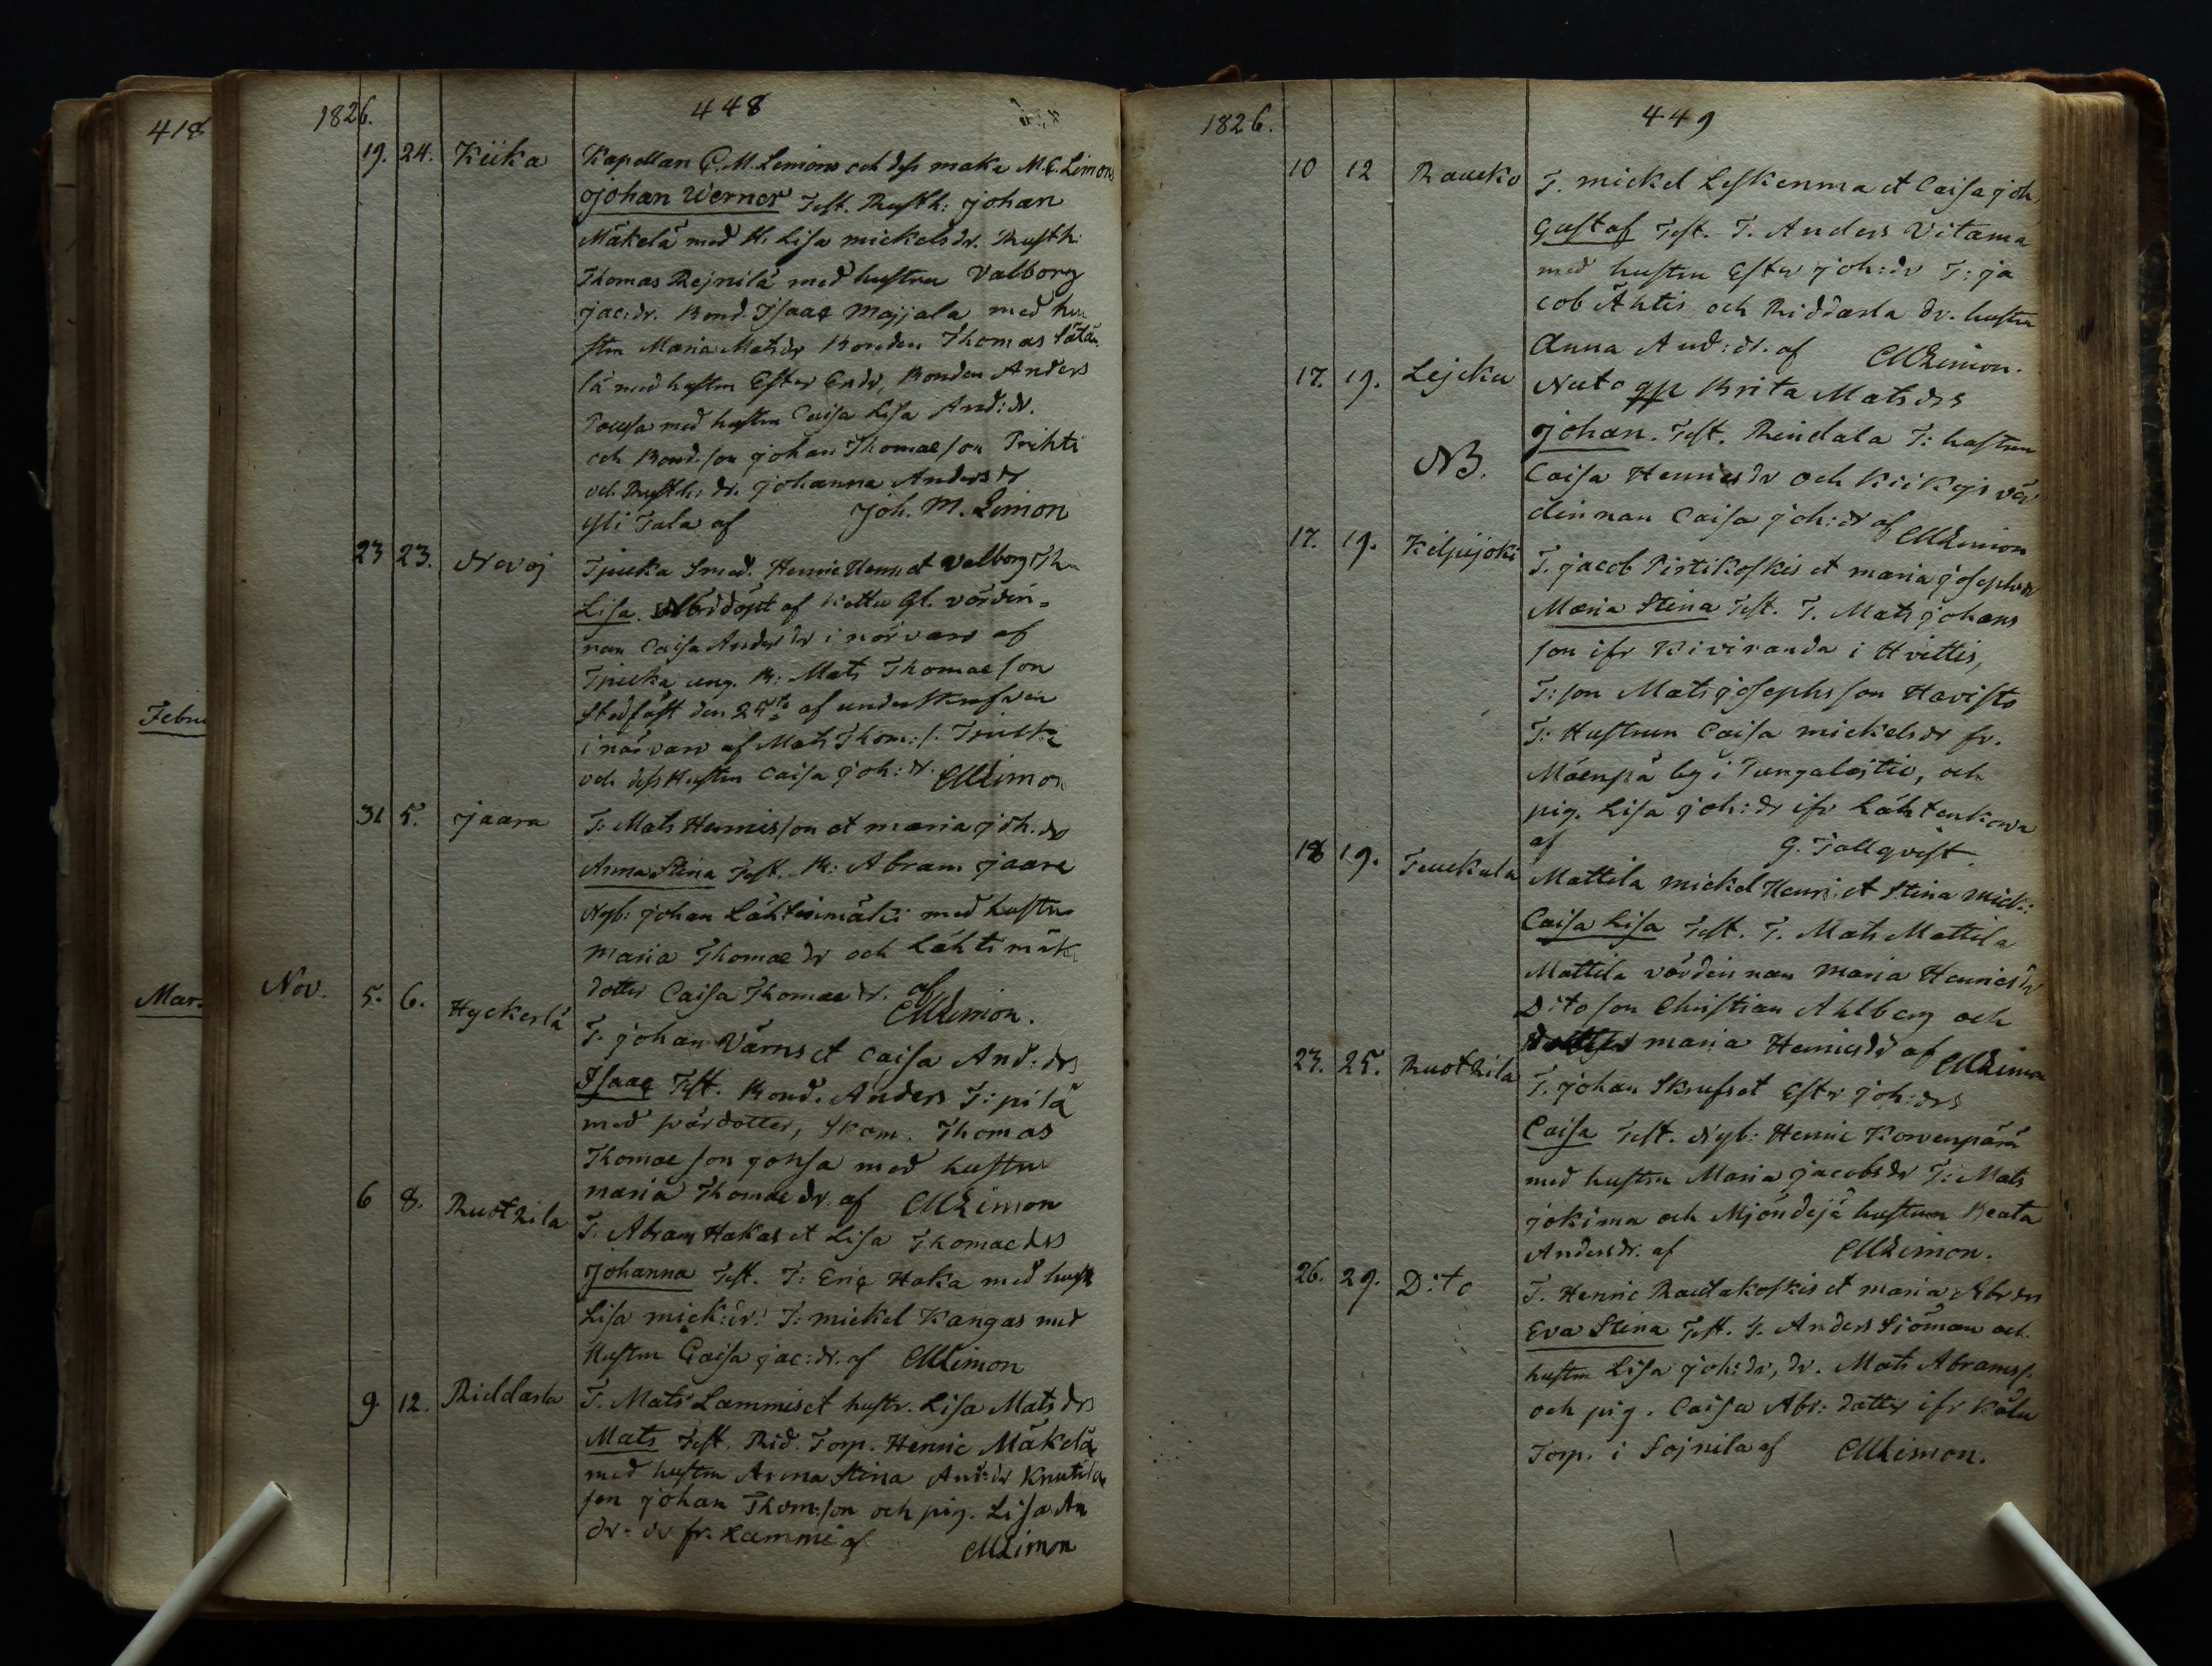 418
Febru
Mar.
1826.
448
19. 24. Kiika Kapellan C. M. Limons och dess maka M. C. Limons
Johan Werner Test. Rusth: Johan
Mäkelä med H. Lisa Mickelsdr. Rusth:
Thomas Rejnilä med hustru Valborg
Jac:dr. Bond. Isaac Majjala med hu
stru Maria Matsdr Bonden Thomas
lä med hustru Ester Erdr, Bonden Anders
med hustru Caisa Lisa And:dr.
och Bond.son Johan Thomasson Prihti
och Rusth: dr. Johanna Andersdr
Yli Tala af Joh. M. Limon
23 23. Novoj Smed. Henric Henr et Valborg Th
Lisa. Nöddöpt af Kottu Gl. värdin-
nan Caisa Andersdr i närvaro af
ung. B: Mats Thomasson
Stadfäst den 25te af underskrefven
i närvaro af Mats Thom:s.
och dess Hustru Caisa Joh:dr. CMLimon
31 5. Jaara T: Mats Hennisson et Maria Joh.dr
Anna Stina Test. B: Abram Jaara
Nyb: Johan Lähtesmäki med hustru
Maria Thomaedr och Lähtimäk
dotter Caisa Thomaedr. af
CMLimon.
Nov. 5. 6. Hyckerlä T. Johan Värns et Caisa And:drs
Isaac Test. Bond. Anders T:pilä
med dotter, Skom. Thomas
Thomaeson Jonsa med hustru
Maria Thomaedr. af CMLimon
6 8. Ruothila T. Abram Hakas et Lisa Thomaedrs
Johanna Test. T: Eric Haka med hustr
Lisa Mick:dr. T: Mickel Kangas med
Hustru Caisa Jac:dr. af CMLimon
9. 12. Riddarla T. Mats Lammis et hustr. Lisa Matsdrs
Mats Test. Rid. Torp. Henric Mäkelä
med hustru Anna Stina And:dr Knutila
son Johan Thom:son och pig. Lisa An
dr- dr fr. Lammi af CMLimon
1826.
449
10 12 Raucko T. Mickel Leskenma et Caisa Joh
Gustaf Test. T. Anders Vitama
med hustru Ester Joh:dr T: Ja
cob Ähtis och Riddarla dr. hustru
Anna And:dr. af CMLimon.
17. 19. Lejcku Nuto qp Brita Matsdrs
Johan. Test. Rindala T: hustru
NB. Caisa Hennicsdr och Kiikojs vär
dinnan Caisa Joh:dr af CMLimon
17. 19. Kilpijoki T. Jacob Pirtikoskis et Maria Josephsdr
Maria Stina Test. T. Mats Johans
son ifr Kiviranda i Hvittis,
T: son Mats Josephsson Havisto
T: Hustrun Caisa Mickelsdr fr.
Mäenpä by i Pungalaitio, och
pig. Lisa Joh:dr ifr Lähtenkorva
af G. Tallqvist.
18 19. Teuckula Mattila Mickel Henri: et Stina Mick:
Caisa Lisa Test. T. Mats Mattila
Mattila värdinnan Maria Hennicsdr
Dito son Christian Ahlberg och
Maria Hennicsdr af CMLimon
23. 25. Ruothila T. Johan Skrufs et Ester Joh:drs
Caisa Test. Nyb: Hennic Korvenpärä
med hustru Maria Jacobsdr T: Mats
Jokima och Mjöndejä hustrun Beata
Andersdr. af CMLimon.
26. 29. D:to T. Hennic Raudakoskis et Maria Abrdrs
Eva Stina Test. T. Anders Sjöman och
hustru Lisa Joh:dr, dr. Mats Abramss.
och pig. Caisa Abr: dotter ifr Kålu
Torp. i Sojnila af CMLimon.